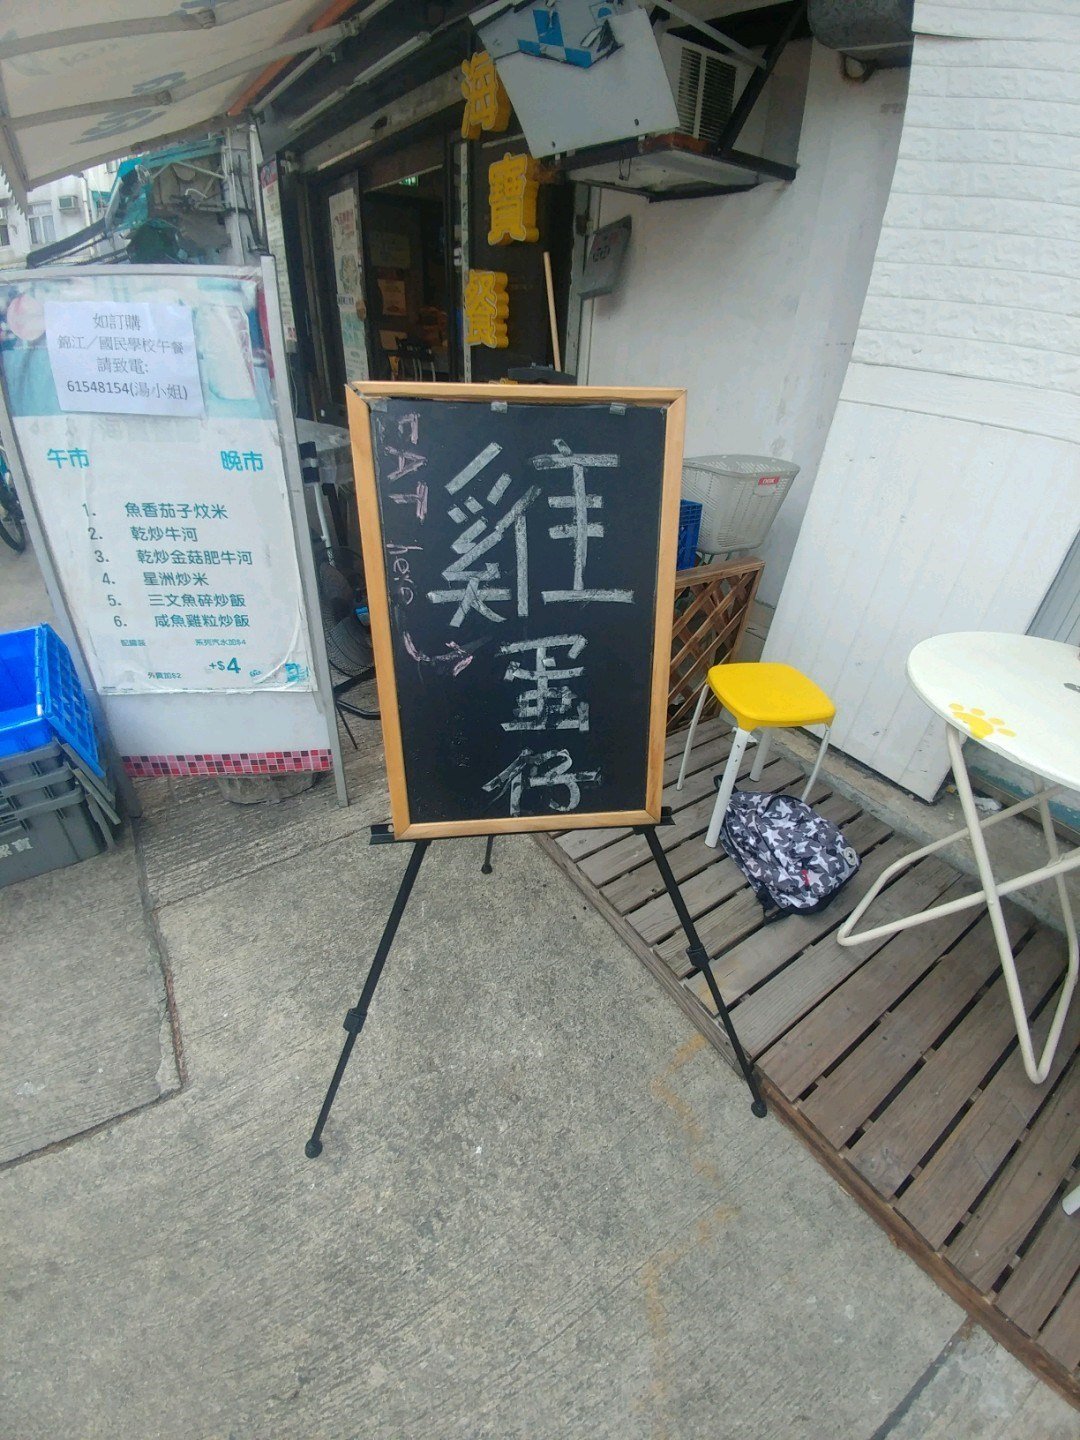 海
寶
餐
如訂購
錦江／國民學校午餐
請致電:
61548154(湯小姐)
午市
晚市
1. 魚香茄子炆米
2. 乾炒牛河
3. 乾炒金菇肥牛河
4. 星洲炒米
5. 三文魚碎炒飯
6. 咸魚雞粒炒飯
配罐裝
系列汽水加$4
+$4
外賣加$2
雞
蛋
仔